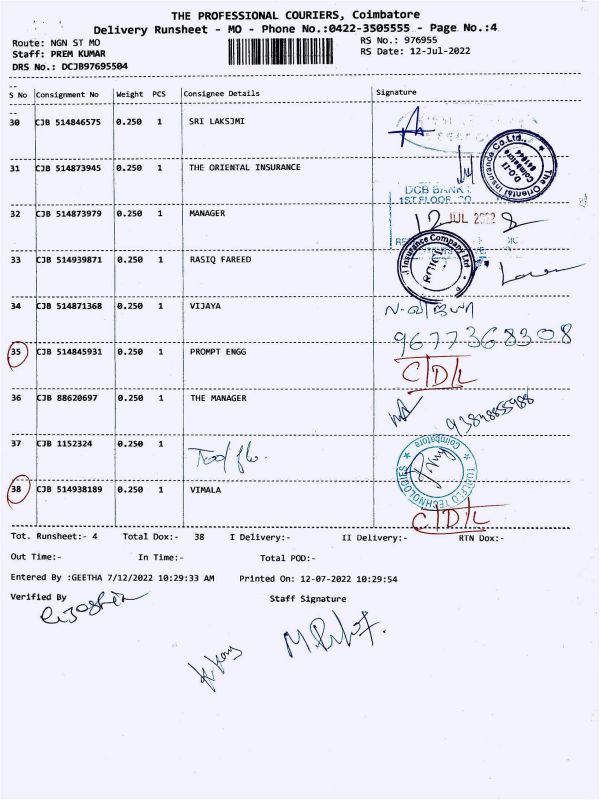 THE PROFESSIONAL COURIERS, Coimbatore
Delivery Runsheet - MO - Phone No.:0422-3505555 - Page No.:4
Route: NGN ST MO
RS No.: 976955
Staff: PREM KUMAR
RS Date: 12-Jul-2022
DRS No.: DCJB97695504
S No Consignment No Weight PCS Consignee Details Signature
30 CJB 514846575 0.250 1 SRI LAKSJMI
31 CJB 514873945 0.250 1 THE ORIENTAL INSURANCE
The Oriental Insurance Co.Ltd.,
D.O-II
Coimbatore
641044
DCB BANK
1ST FLOOR
32 CJB 514873979 0.250 1 MANAGER
12 JUL 2022
33 CJB 514939871 0.250 1 RASIQ FAREED
Insurance Company Ltd
34 CJB 514871368 0.250 1 VIJAYA
ந. விஜயா
9677368308
35 CJB 514845931 0.250 1 PROMPT ENGG
C/D/L
36 CJB 88620697 0.250 1 THE MANAGER
37 CJB 1152324 0.250 1
TORFLO TECHNOLOGIES
Coimbatore
38 CJB 514938189 0.250 1 VIMALA
C/D/L
Tot. Runsheet:- 4 Total Dox:- 38 I Delivery:- II Delivery:- RTN Dox:-
Out Time:- In Time:- Total POD:-
Entered By :GEETHA 7/12/2022 10:29:33 AM Printed On: 12-07-2022 10:29:54
Verified By Staff Signature